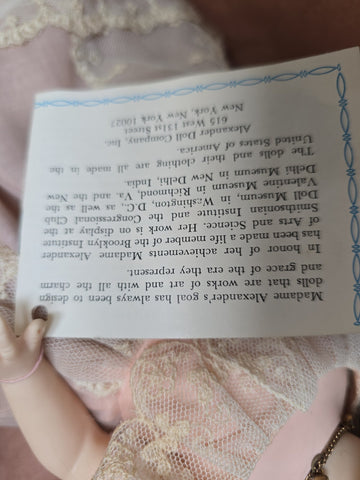 Madame Alexander's goal has always been to design
dolls that are works of art and with all the charm
and grace of the era they represent.
In honor of her achievements Madame Alexander
has been made a life member of the Brooklyn Institute
of Arts and Science. Her work is on display at the
Smithsonian Institute and the Congressional Club
Doll Museum, in Washington, D.C., as well as the
Valentine Museum in Richmond, Va. and the New
Delhi Museum in New Delhi, India.
The dolls and their clothing are all made in the
United States of America.
Alexander Doll Company, Inc.
615 West 131st Street
New York, New York 10027